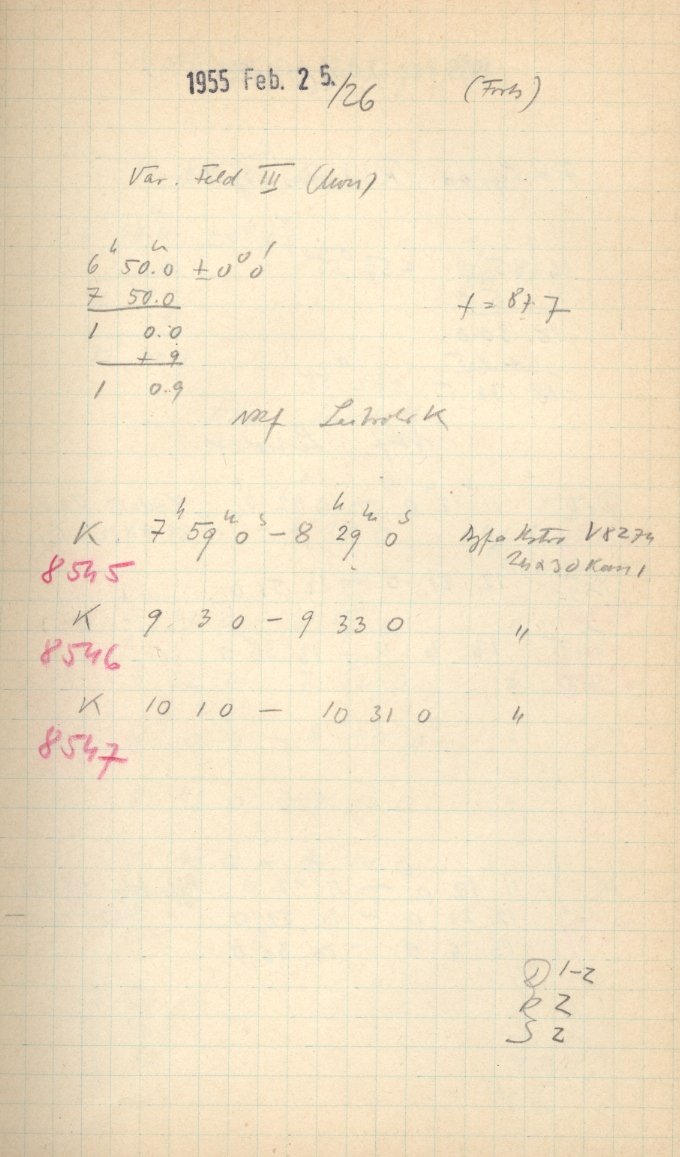 1955 Feb. 25./26 (Forts)
Var. Feld III
6ʰ 50.ᵐ0 ± 0° 0'
7 50.0
1 0.0
+ 9
1 0.9
t = 87.7
K 7ʰ 59ᵐ 0ˢ – 8ʰ 29ᵐ 0ˢ Agfa Astro V8274
8545
24x30
K 9 3 0 – 9 33 0 "
8546
K 10 1 0 – 10 31 0 "
8547
D 1-2
R 2
S 2